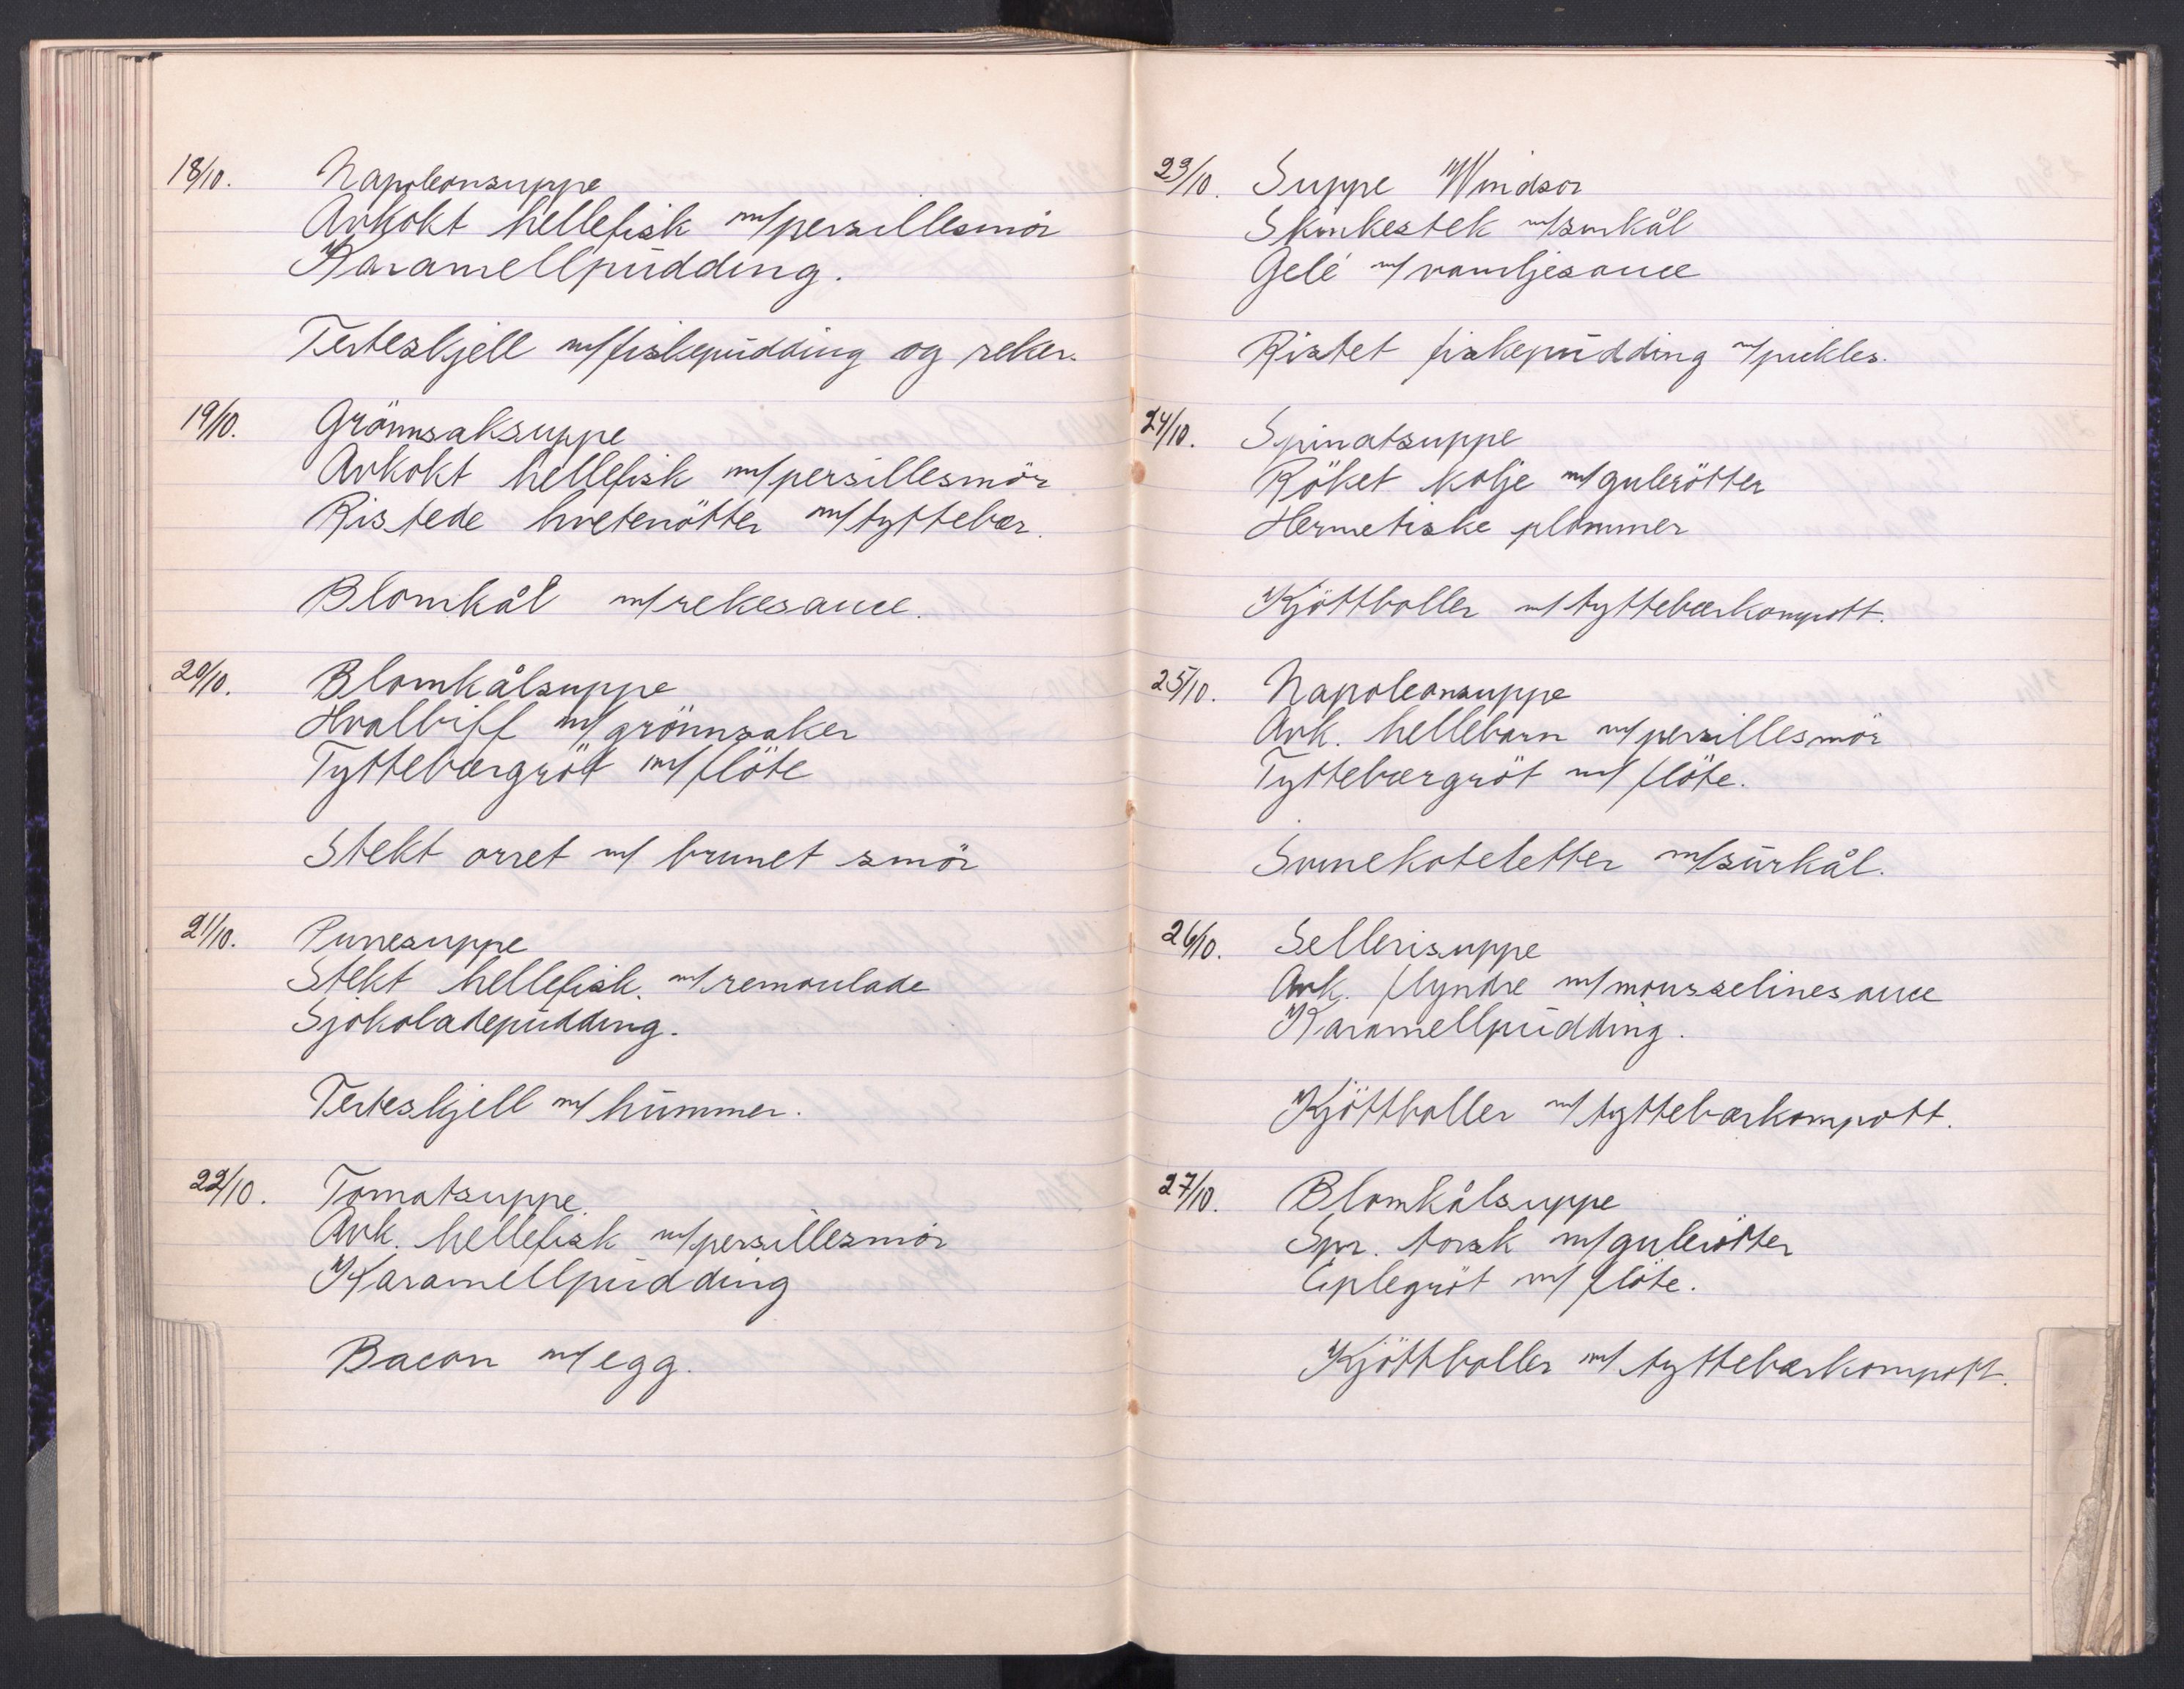 18/10. Napoleonsuppe
Avkokt hellefisk m/persillesmör
Karamellpudding.
Terteskjell m/fiskepudding og reker.
19/10. Grönnsaksuppe
Avkokt hellefisk m/persillesmör
Ristede hvetenötter m/tyttebær.
Blomkål m/rekesauce.
20/10. Blomkålsuppe
Hvalbiff m/grönnsaker
Tyttebærgröt m/flöte
Stekt orret m/ brunet smör
21/10. Purresuppe
Stekt hellefisk. m/remoulade
Sjokoladepudding.
Terteskjell m/ hummer.
22/10. Tomatsuppe.
Avk. hellefisk m/persillesmör
Karamellpudding
Bacon m/egg.
23/10. Suppe Windsor
Skinkestek m/surkål
Gelé m/vaniljesauce
Ristet fiskepudding m/pickles.
24/10. Spinatsuppe
Röket kolje m/gulerötter
Hermetiske plommer
Kjöttboller m/tyttebærkompott.
25/10. Napoleonsuppe
Avk. hellebarn m/persillesmör
Tyttebærgröt m/ flöte.
Svinekoteletter m/surkål.
26/10. Sellerisuppe
Avk. flyndre m/mousselinesauce
Karamellpudding.
Kjöttboller m/tyttebærkompott.
27/10. Blomkålsuppe
Spr. torsk m/gulerötter
Eplegröt m/ flöte.
Kjöttboller m/ tyttebærkompott.